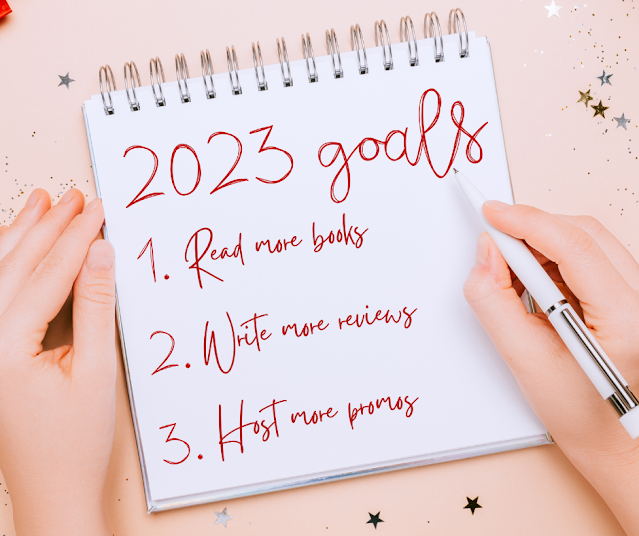 2023 goals
1. Read more books
2. Write more reviews
3. Host more promos